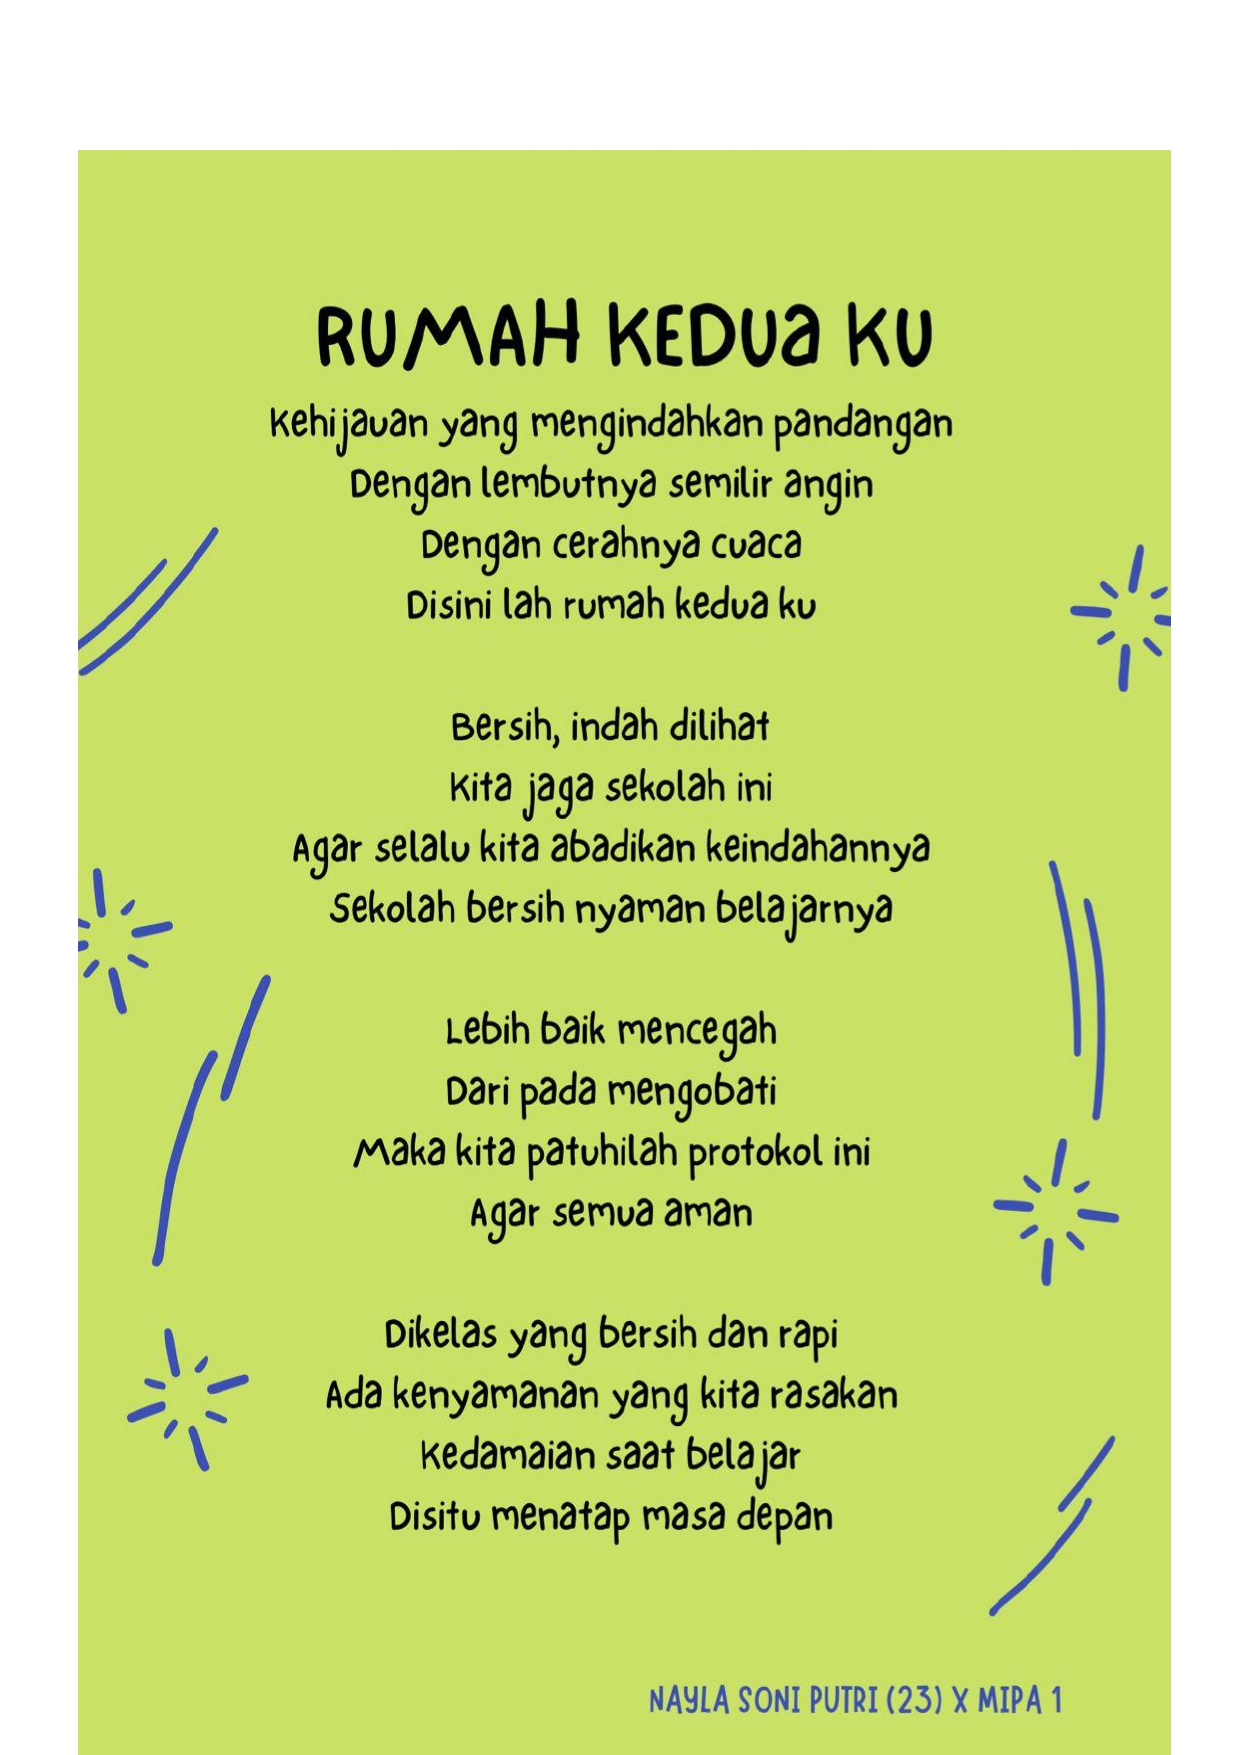 RUMAH KEDUA KU
Kehijauan yang mengindahkan pandangan
Dengan lembutnya semilir angin
Dengan cerahnya cuaca
Disini lah rumah kedua ku
Bersih, indah dilihat
Kita jaga sekolah ini
Agar selalu kita abadikan keindahannya
Sekolah bersih nyaman belajarnya
Lebih baik mencegah
Dari pada mengobati
Maka kita patuhilah protokol ini
Agar semua aman
Dikelas yang bersih dan rapi
Ada kenyamanan yang kita rasakan
Kedamaian saat belajar
Disitu menatap masa depan
NAYLA SONI PUTRI (23) X MIPA 1